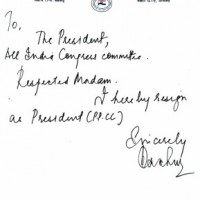 To,
The President,
All India Congress committee.
Respected Madam.
I hereby resign
as President (PPCC)
Sincerely